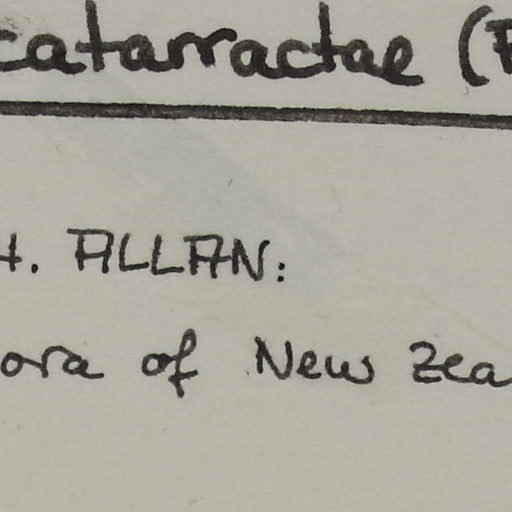 catarractae (F
H. ALLAN:
ora of New Zea